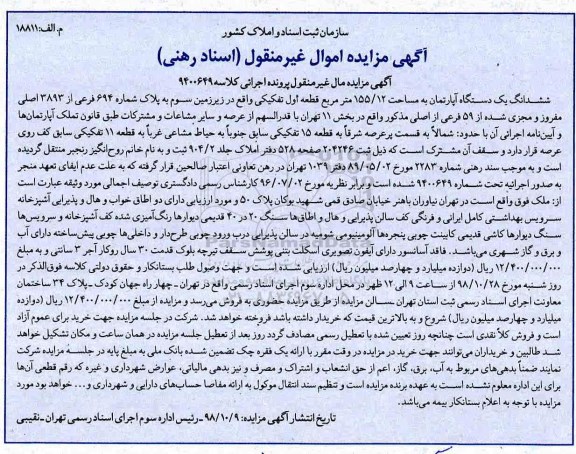 م.الف:۱۸۸۱۱
سازمان ثبت اسناد و املاک کشور
آگهی مزایده اموال غیرمنقول (اسناد رهنی)
آگهی مزایده مال غیرمنقول پرونده اجرائی کلاسه ۹۴۰۰۶۴۹
ششدانگ یک دستگاه آپارتمان به مساحت ۱۵۵/۱۲ متر مربع قطعه اول تفکیکی واقع در زیرزمین سوم به پلاک شماره ۶۹۴ فرعی از ۳۸۹۳ اصلی
مفروز و مجزی شده از ۵۹ فرعی از اصلی مذکور واقع در بخش ۱۱ تهران با قدرالسهم از عرصه و سایر مشاعات و مشترکات طبق قانون تملک آپارتمان‌ها
و آیین‌نامه اجرائی آن با حدود: شمالاً به قسمت پرعرصه شرقاً به قطعه ۱۵ تفکیکی سابق جنوباً به حیاط مشاعی غرباً به قطعه ۱۱ تفکیکی سابق کف روی
عرصه قرار دارد و سقف آن مشترک است که ذیل ثبت ۲۰۴۲۴۶ صفحه ۵۲۸ دفتر املاک جلد ۹۰۴/۲ ثبت و به نام خانم روح‌انگیز رنجبر منتقل گردیده
است و به موجب سند رهنی شماره ۲۲۸۳ مورخ ۸۹/۰۵/۰۲ دفتر ۱۰۳۹ تهران در رهن تعاونی اعتبار صالحین قرار گرفته که به علت عدم ایفای تعهد منجر
به صدور اجرائیه تحت شماره ۹۴۰۰۶۴۹ شده است و برابر نظریه مورخ ۹۶/۰۷/۰۲ کارشناس رسمی دادگستری توصیف اجمالی مورد وثیقه عبارت است
از: ملک فوق واقع است در تهران نیاوران باهنر خیابان صادق قمی شهید بوکان پلاک ۵۰ و مورد ارزیابی دارای دو اطاق خواب و هال و پذیرایی آشپزخانه
سرویس بهداشتی کامل ایرانی و فرنگی کف سالن پذیرایی و هال و اطاق‌ها سنگ ۲۰ در ۴۰ قدیمی دیوارها رنگ‌آمیزی شده کف آشپزخانه و سرویس‌ها
سنگ دیوارها کاشی قدیمی کابینت چوبی پنجره‌ها آلومینیومی شومینه در سالن پذیرایی درب ورود چوبی طرح‌دار و داخلی‌ها چوبی پیش‌ساخته دارای آب
و برق و گاز شهری می‌باشد. فاقد آسانسور دارای آیفون تصویری اسکلت بتنی پوشش سقف تیرچه بلوک قدمت ۳۰ سال روکار آجر ۳ سانتی و به مبلغ
۱۲/۴۰۰/۰۰۰/۰۰۰ ریال (دوازده میلیارد و چهارصد میلیون ریال) ارزیابی شده است و جهت وصول طلب بستانکار و حقوق دولتی کلاسه فوق‌الذکر در
روز شنبه مورخ ۹۸/۱۰/۲۸ از ساعت ۹ الی ۱۲ ظهر در محل اداره سوم اجرای اسناد رسمی واقع در تهران ـ چهار راه جهان کودک ـ پلاک ۳۴ ساختمان
معاونت اجرای اسناد رسمی ثبت استان تهران ـ سالن مزایده از طریق مزایده حضوری به فروش می‌رسد و مزایده از مبلغ ۱۲/۴۰۰/۰۰۰/۰۰۰ ریال (دوازده
میلیارد و چهارصد میلیون ریال) شروع و به بالاترین قیمت که خریدار داشته باشد فروخته خواهد شد. شرکت در جلسه مزایده جهت خرید برای عموم آزاد
است و فروش کلاً نقدی است چنانچه روز تعیین شده با تعطیل رسمی مصادف گردد روز بعد از تعطیل جلسه مزایده در همان ساعت و مکان تشکیل خواهد
شد طالبین و خریداران می‌توانند جهت خرید در مزایده در وقت مقرر با ارائه یک فقره چک تضمین شده بانک ملی به مبلغ پایه در جلسه مزایده شرکت
نمایند ضمناً بدهی‌های مربوط به آب، برق، گاز، اعم از حق انشعاب و اشتراک و مصرف و نیز بدهی مالیاتی، عوارض شهرداری و غیره که رقم قطعی آن‌ها
برای این اداره معلوم نشده است به عهده برنده مزایده است و تنظیم سند انتقال موکول به ارائه مفاصا حساب‌های دارایی و شهرداری و... خواهد بود مورد
مزایده با توجه به اعلام بستانکار بیمه می‌باشد.
تاریخ انتشار آگهی مزایده: ۹۸/۱۰/۹ ـ رئیس اداره سوم اجرای اسناد رسمی تهران ـ نقیبی